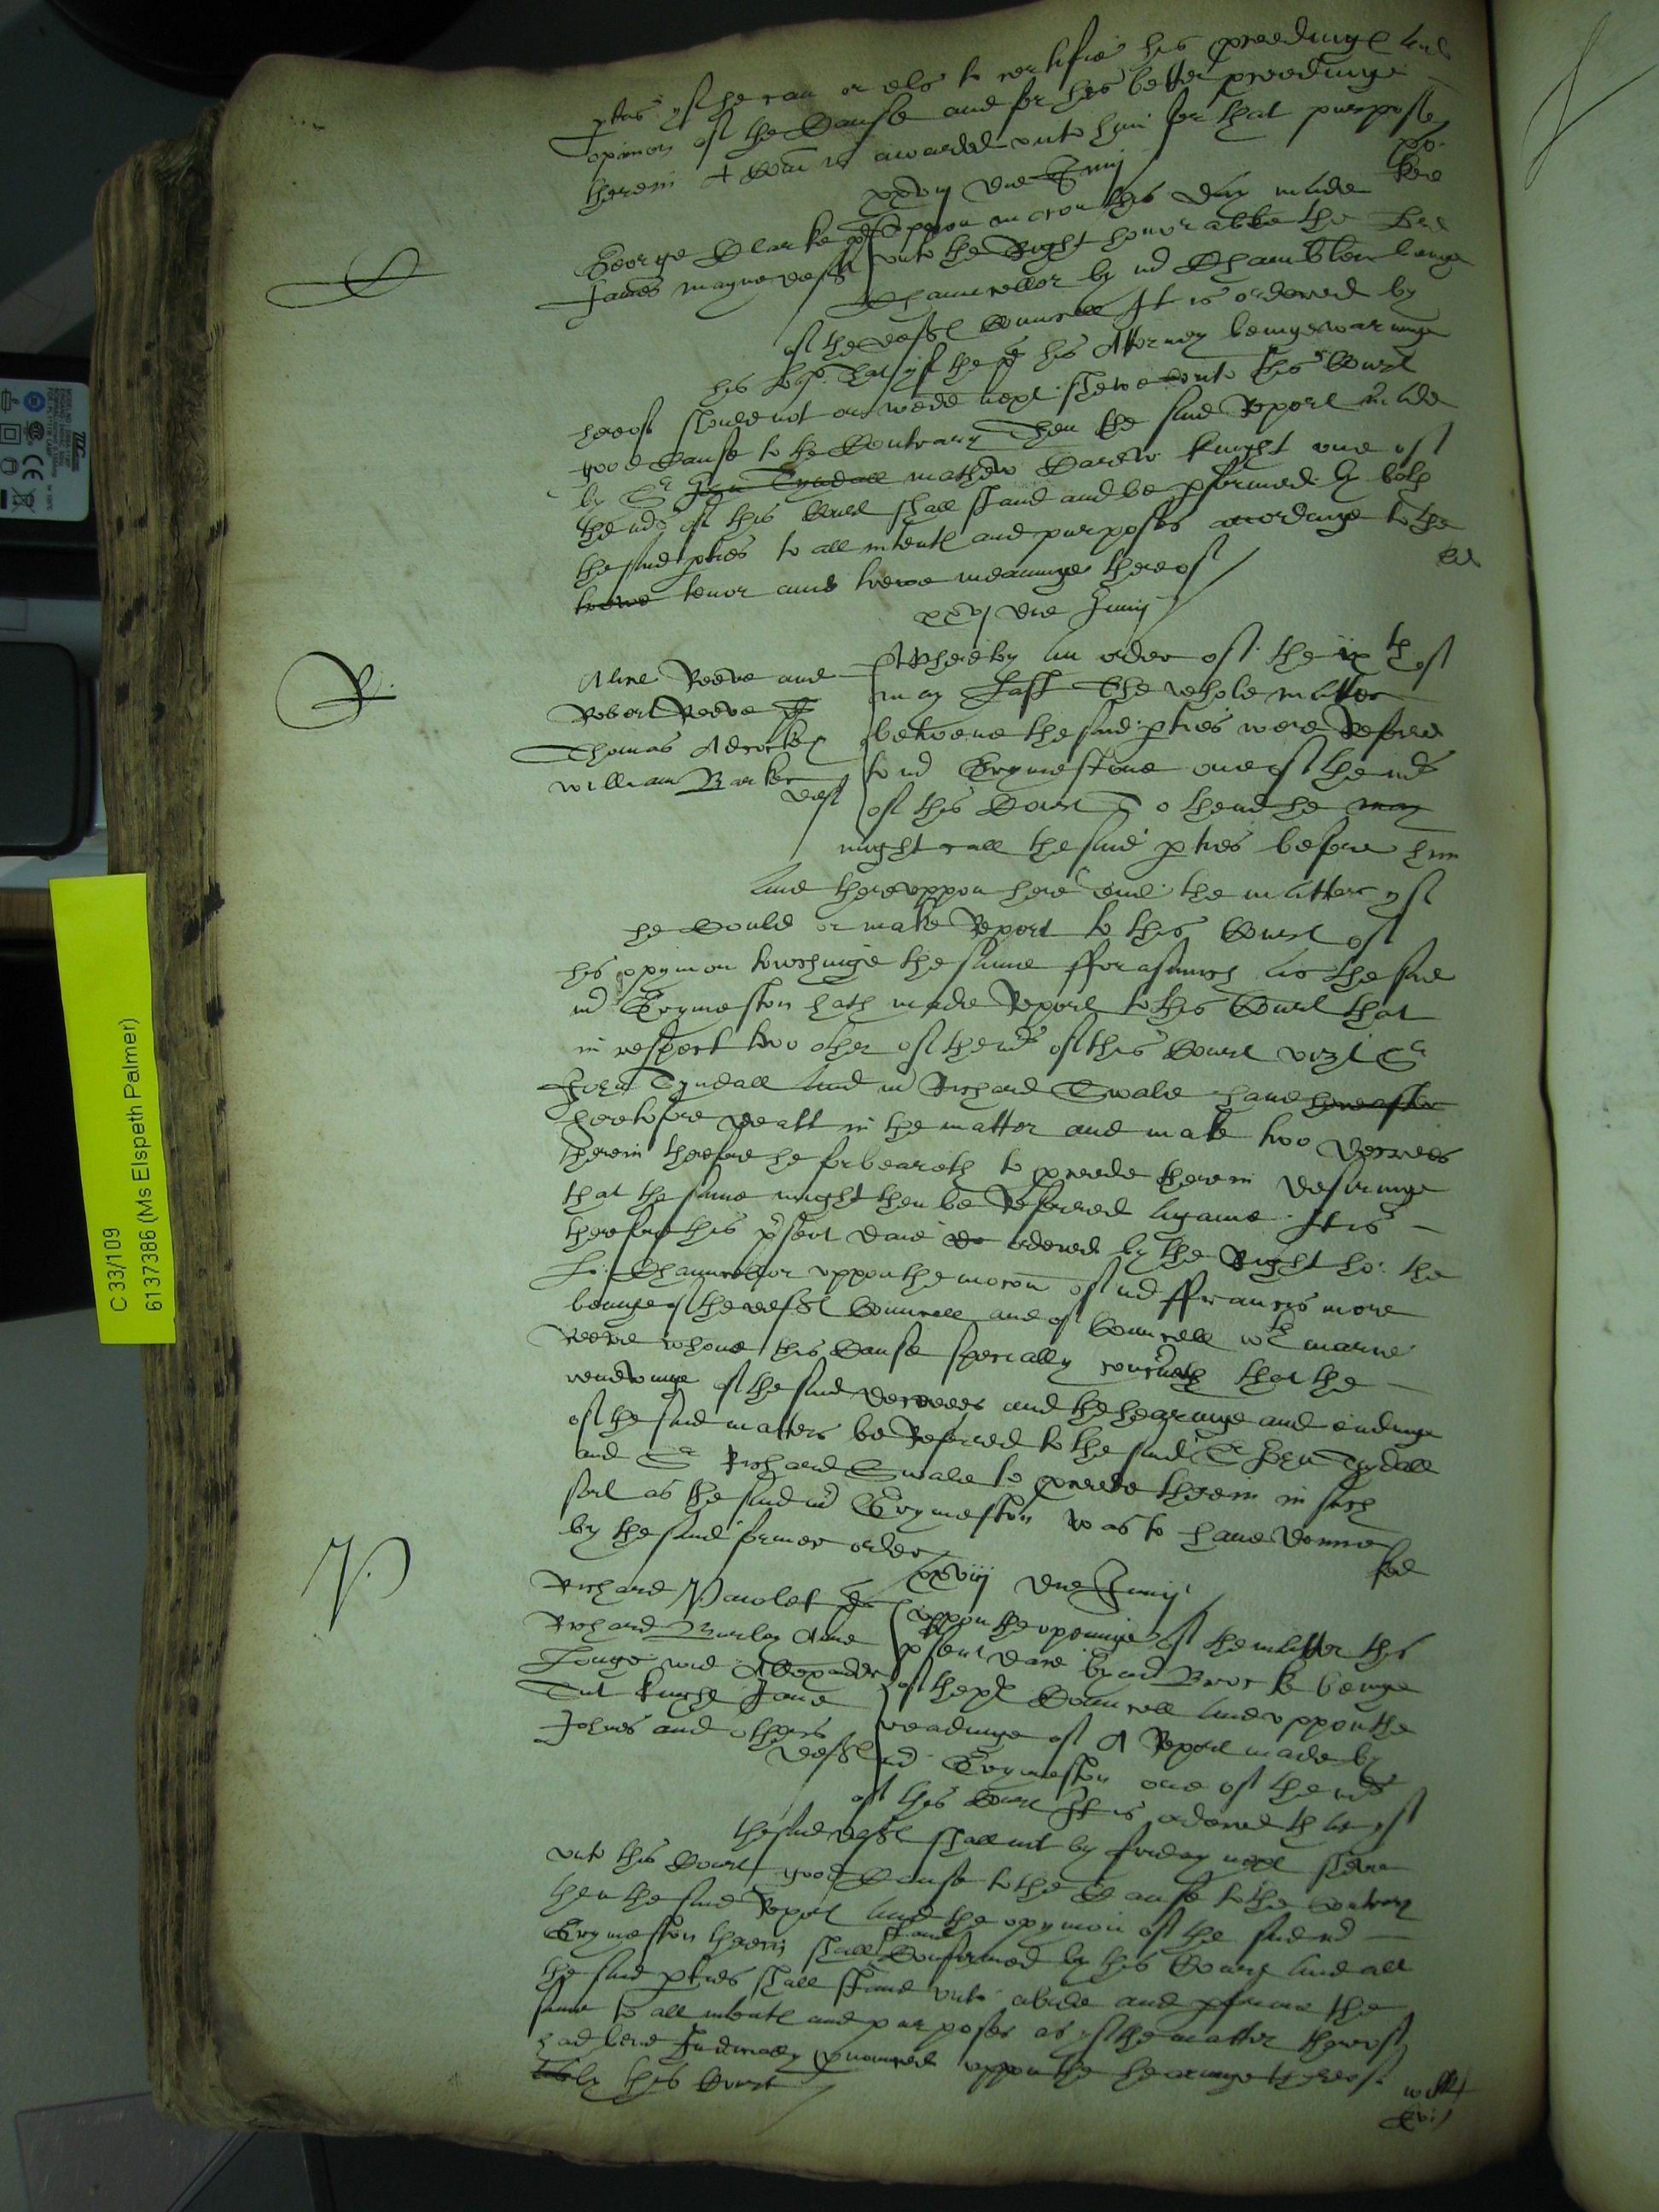 pties yf he can or els to certifie his proceedinge and
opinion of the Cause and for his better proceedinge
therein A Com is awarded unto him for that purpose
po.
xxvij die Junij
kee
George Clarke pl Uppon mocon this day made
James mayne deft unto the Right honorable the Lord
Chauncellor by mr Chamberlen beinge
of the defts Councell It is ordered by
his Lp. that yf the pl his Attorney beinge warninge
hereof should not on wedd next shewe unto this Court
good Cause to the Contrary Then the said Report made
by Sr John Tyndall mathew Carew knight one of
the mrs of this Court shall stand and be pformed by both
the said pties to all intents and purposes accordinge to the
trewe tenor and trewe meaninge thereof
xxvj die Junij
R.
Alice Reeve and Whereby an order of the ix th of
Robert Reeve pl may last The whole matter
Thomas betwene the said pties were Referred
William Barker to mr Grymestone one of the mrs
deft of this Court To thend he may
might call the said pties before him
and thereuppon heare end the matter yf
he Could or make Report to this Court of
his opynion towchinge the same fforasmuch as the said
mr Grymeston hath made Report to this Court that
in respect two other of the mrs of this Court vizt Sr
John Tyndall and mr Richard Swale have hereafter
heretofore dealt in the matter and made two decrees
therein therefore he forbeareth to proceede therein desiringe
that the same might then be Referred againe It is
therefore this psent daie de ordered by the Right ho: the
Lo: Chauncellor uppon the mocon of mr ffrauncis more
beinge of the defts Councell and of Councell wth
Reeve whome this Cause specially concerneth that the
reviewinge of the said decrees and the hearinge and endinge
of the said matters be Referred to the said Sr John Tyndall
and Sr Richard Swale to proceede therein in such
sort as the said mr Grymeston was to have donne
by the said former order
ked
P
xxviij die Junij
Richard Pawlet pl uppon the openinge of the matter this
Richard Burley Anne psent daie by mr Brocke beinge
Longe wid Allexander of the pl Councell and uppon the
Tut knight Jane readinge of A Report made by
Johnes and others defts mr Grymeston one of the mrs
of this Court It is ordered that yf
the said defts shall not by friday next shewe
unto this Court good Cause to the Cause to the Contrary
then the said Report and the opynion of the said mr
Grymeston therein shall stand Confirmed by this Court and all
the said pties shall stand unto abide and pforme the
same to all intents and purposes as yf the matter thereof
had bene Judicially pnounced uppon the hearinge thereof
by this Court